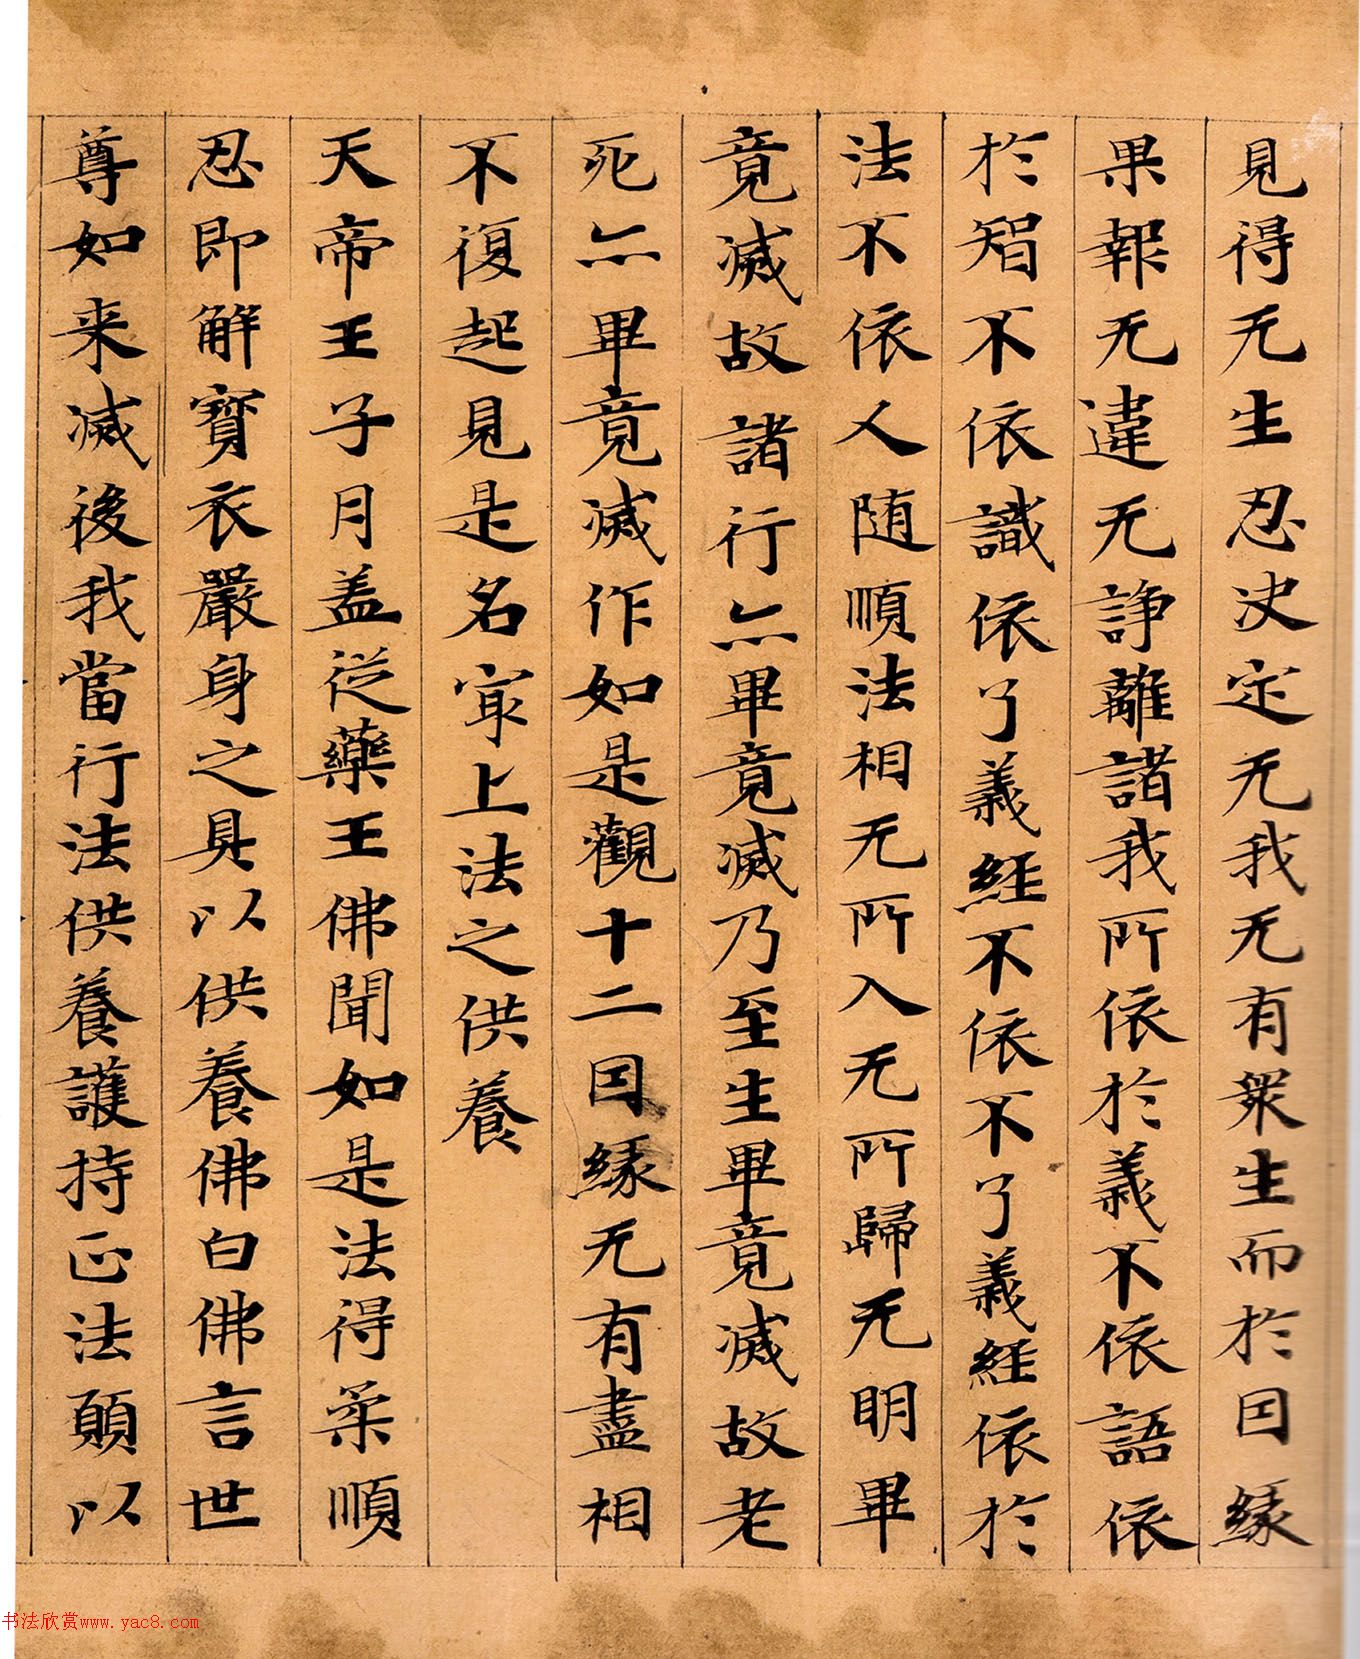 見得无生忍决定无我无有衆生而於因緣
果報无違无諍離諸我所依於義不依語依
於智不依識依了義經不依不了義經依於
法不依人随順法相无所入无所歸无明畢
竟滅故諸行亦畢竟滅乃至生畢竟滅故老
死亦畢竟滅作如是觀十二因緣无有盡相
不復起見是名冣上法之供養
天帝王子月盖従藥王佛聞如是法得柔順
忍即解寳衣嚴身之具以供養佛白佛言世
尊如来滅後我當行法供養護持正法願以
书法欣赏www.yac8.com